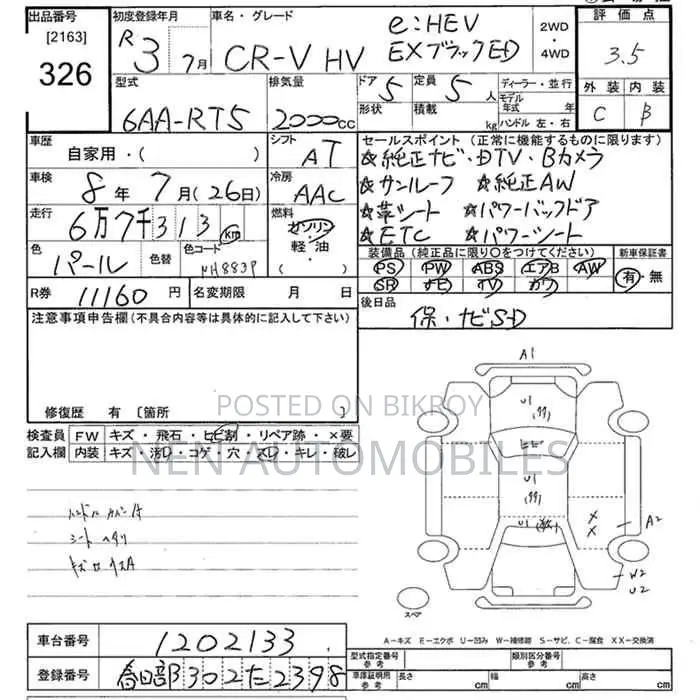 出品番号
[2163]
326
初度登録年月
R 3 7月
車名・グレード
CR-V HV
e:HEV
EXブラックED
2WD
・
4WD
評価点
3.5
外装 内装
C B
型式
6AA-RT5
排気量
2000cc
ドア 5
定員 5人
形状
積載 kg
ディーラー・並行
モデル年式 年
ハンドル 左・右
車歴
自家用・( )
シフト
AT
車検
8年7月(26日)
冷房
AAC
走行
6万7千313km
燃料
ガソリン・
軽・油
・( )
色
パール
色替
色コード
NH883P
R券 11160円
名変期限 月 日
セールスポイント (正常に機能するものに限ります)
☆純正ナビ・DTV・Bカメラ
☆サンルーフ ☆純正AW
☆革シート ☆パワーバックドア
☆ETC ☆パワーシート
装備品 (純正品に限り〇をつけてください)
PS PW ABS エアB AW
SR ナビ TV カワ
新車保証書
有・無
後日品
保・ナビSD
注意事項申告欄 (不具合内容等は具体的に記入して下さい)
修復歴 有 [箇所 ]
検査員
記入欄
FW キズ・飛石・ヒビ割・リペア跡・×要
内装 キズ・汚D・コゲ・穴・スレ・キレ・破レ
POSTED ON BIKROY
NEN AUTOMOBILES
A1
U1
ヒビ
U1
U1
X
X
A2
W2
U2
スペア
A-キズ E-エクボ U-凹み W-補修跡 S-サビ、C-腐食 XX-交換済
車台番号
1202133
登録番号
春日部302た2398
型式指定番号
参考
類別区分番号
参考
車庫証明用
参考
長さ cm
幅 cm
高さ cm